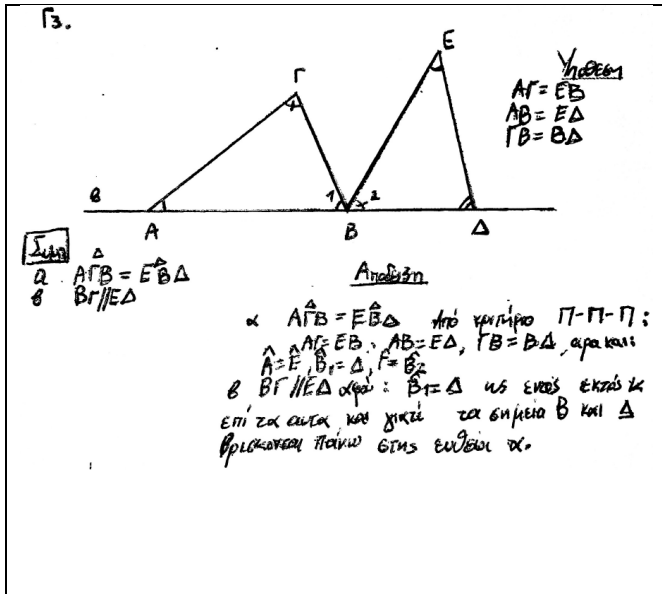 Γ3.
Γ
Ε
Υπόθεση
ΑΓ = ΕΒ
ΑΒ = ΕΔ
ΓΒ = ΒΔ
1 2
Α Β Δ
Συμπ
α ΑΓΒ = ΕΒΔ
β ΒΓ//ΕΔ
Απόδειξη
α ΑΓΒ = ΕΒΔ Από κριτήριο Π-Π-Π:
ΑΓ = ΕΒ, ΑΒ = ΕΔ, ΓΒ = ΒΔ, άρα και:
Â = Ê, B̂₁ = Δ, Γ̂ = B̂₂
β ΒΓ//ΕΔ αφού: B̂₁ = Δ ως εντός εκτός κ
επί τα αυτα και γιατί τα σημεία Β και Δ
βρίσκονται πάνω στης ευθεία